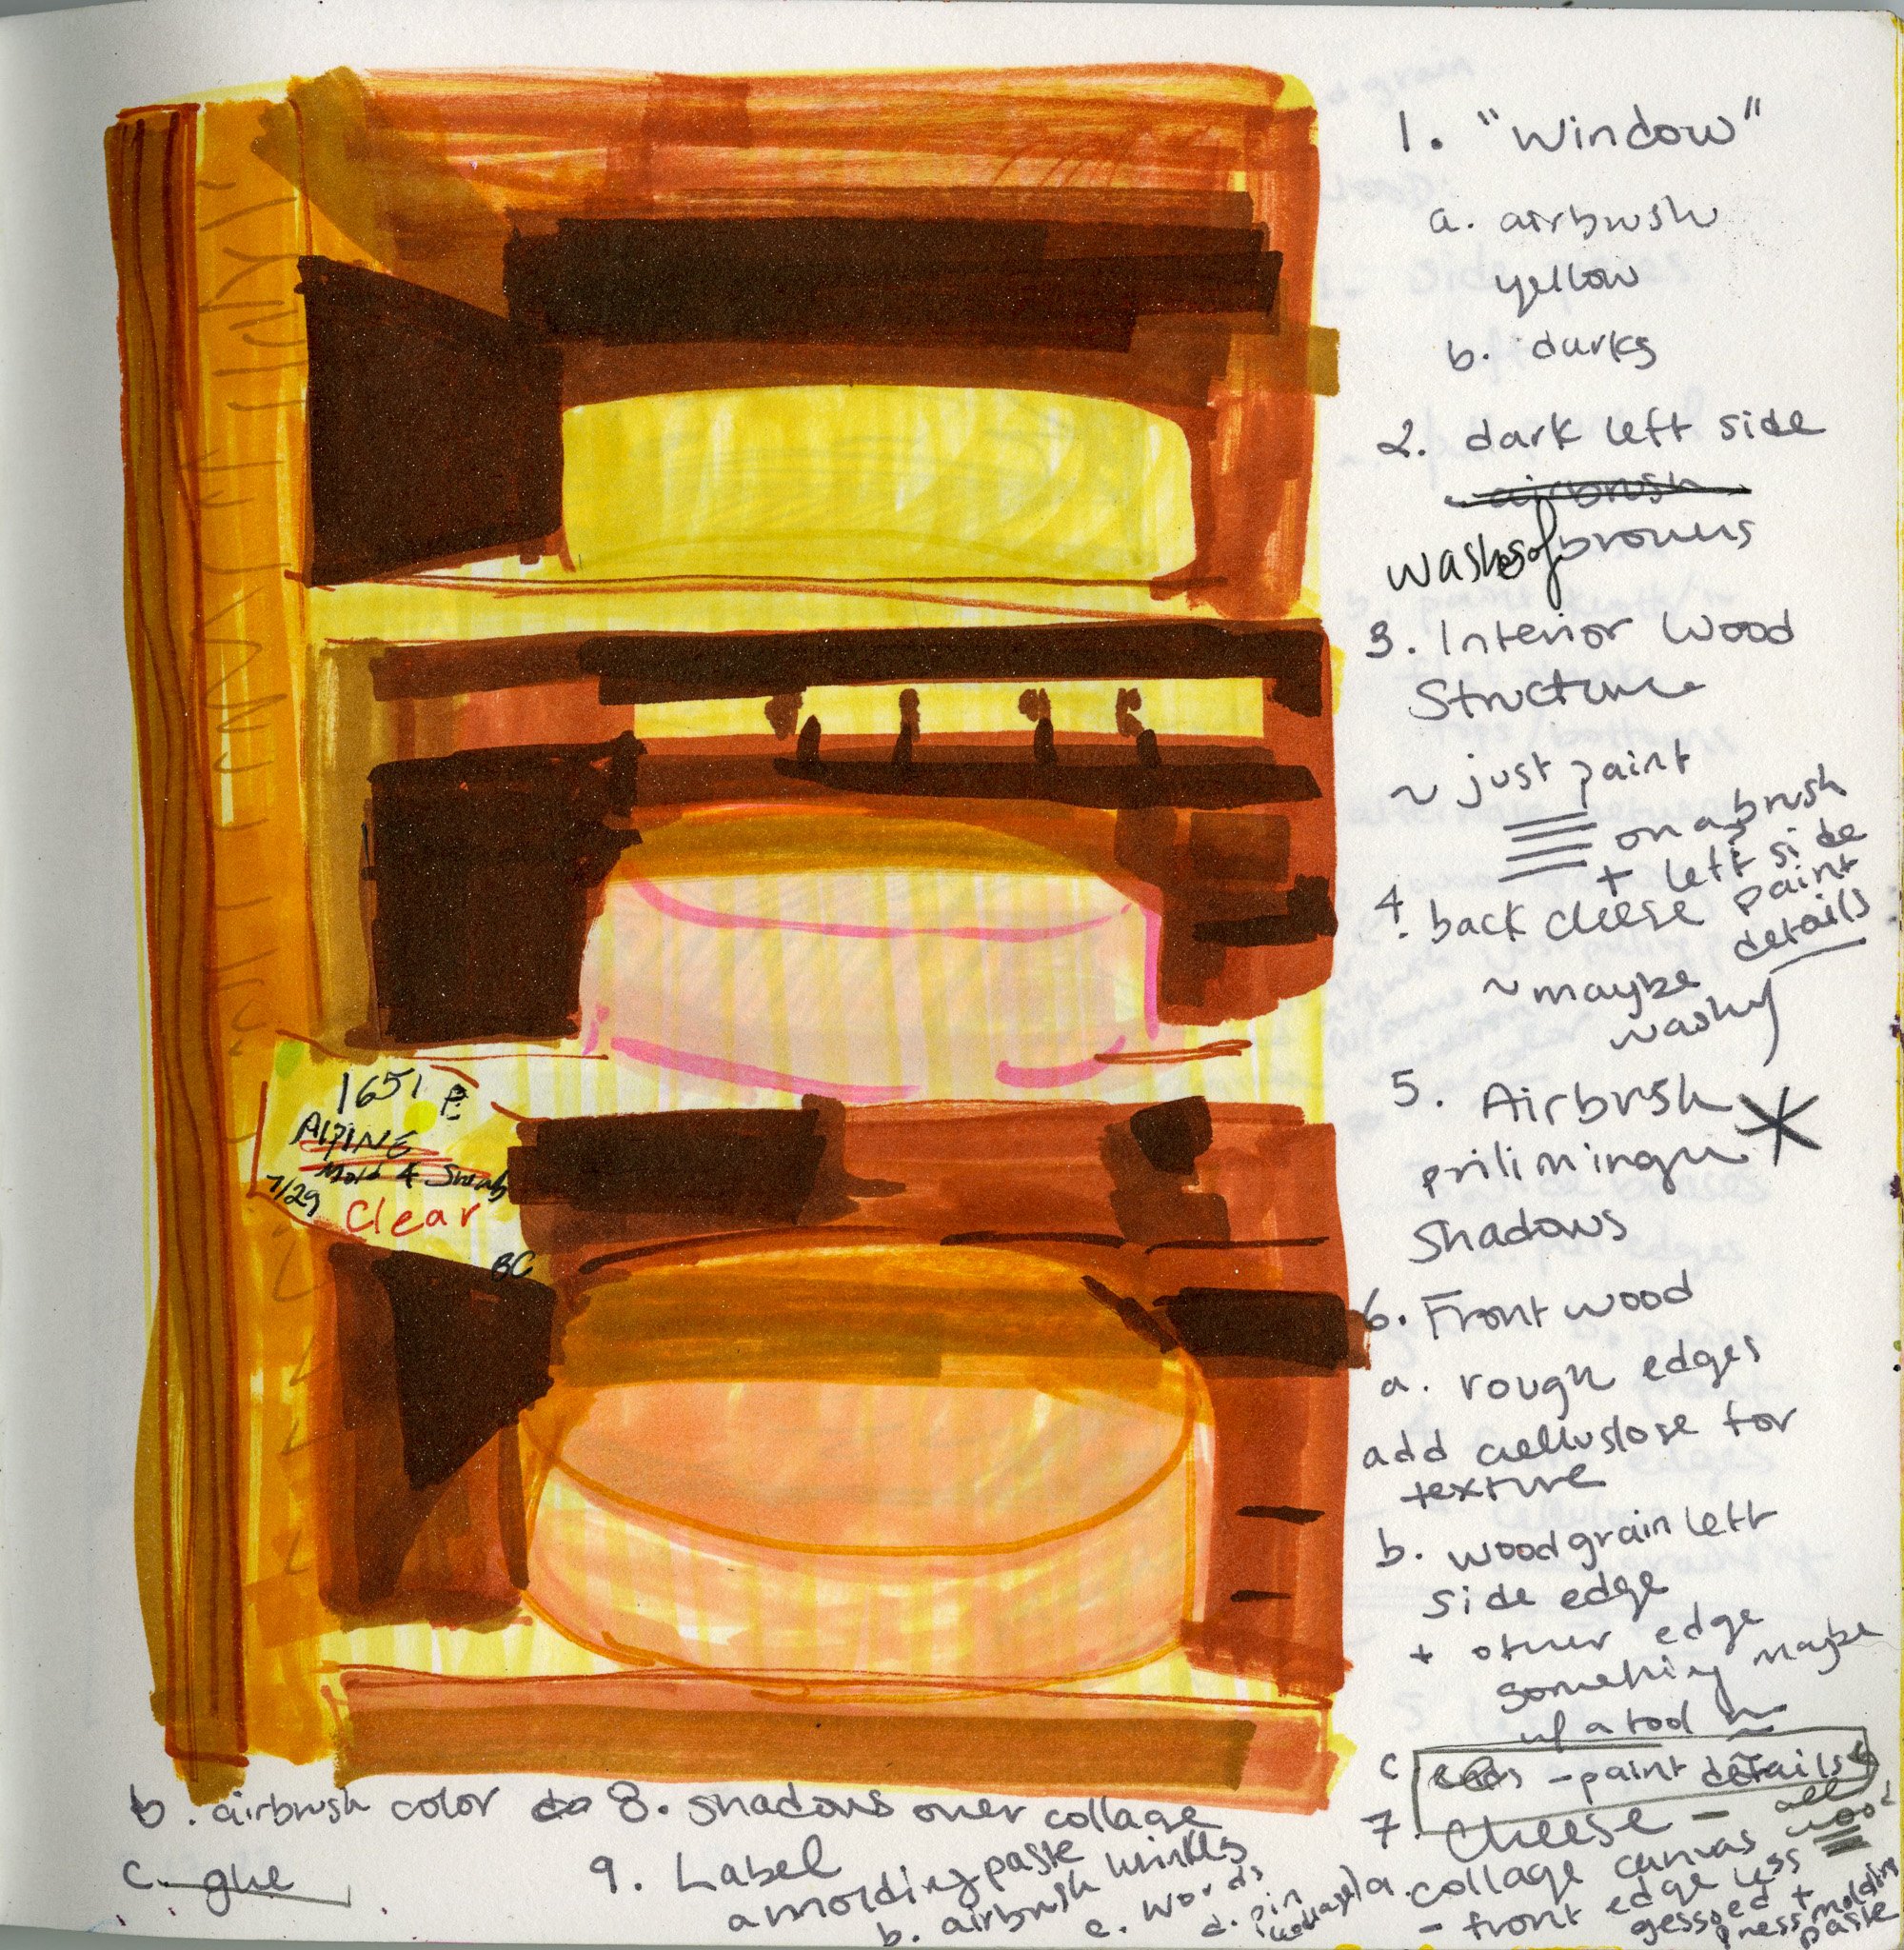 1. "Window"
a. airbrush
yellow
b. darks
2. dark left side
airbrush
washes of browns
3. Interior Wood
Structure
~ just paint
on a brush
+ left side
paint
details
4. back cheese
~ maybe
washy
5. Airbrush
shadows
6. Front wood
a. rough edges
add celluslose for
texture
b. woodgrain left
side edge
+ other edge
something maybe
c
- paint details
7. Cheese -
a. collage canvas
- front edge less
gessoed +
press molding
paste
b. airbrush color
c. glue
8. shadows over collage
9. Label
a molding paste
b. airbrush wrinkles
c. words
d. pin
1651
ALPINE
Mold &
7/29
Clear
BC